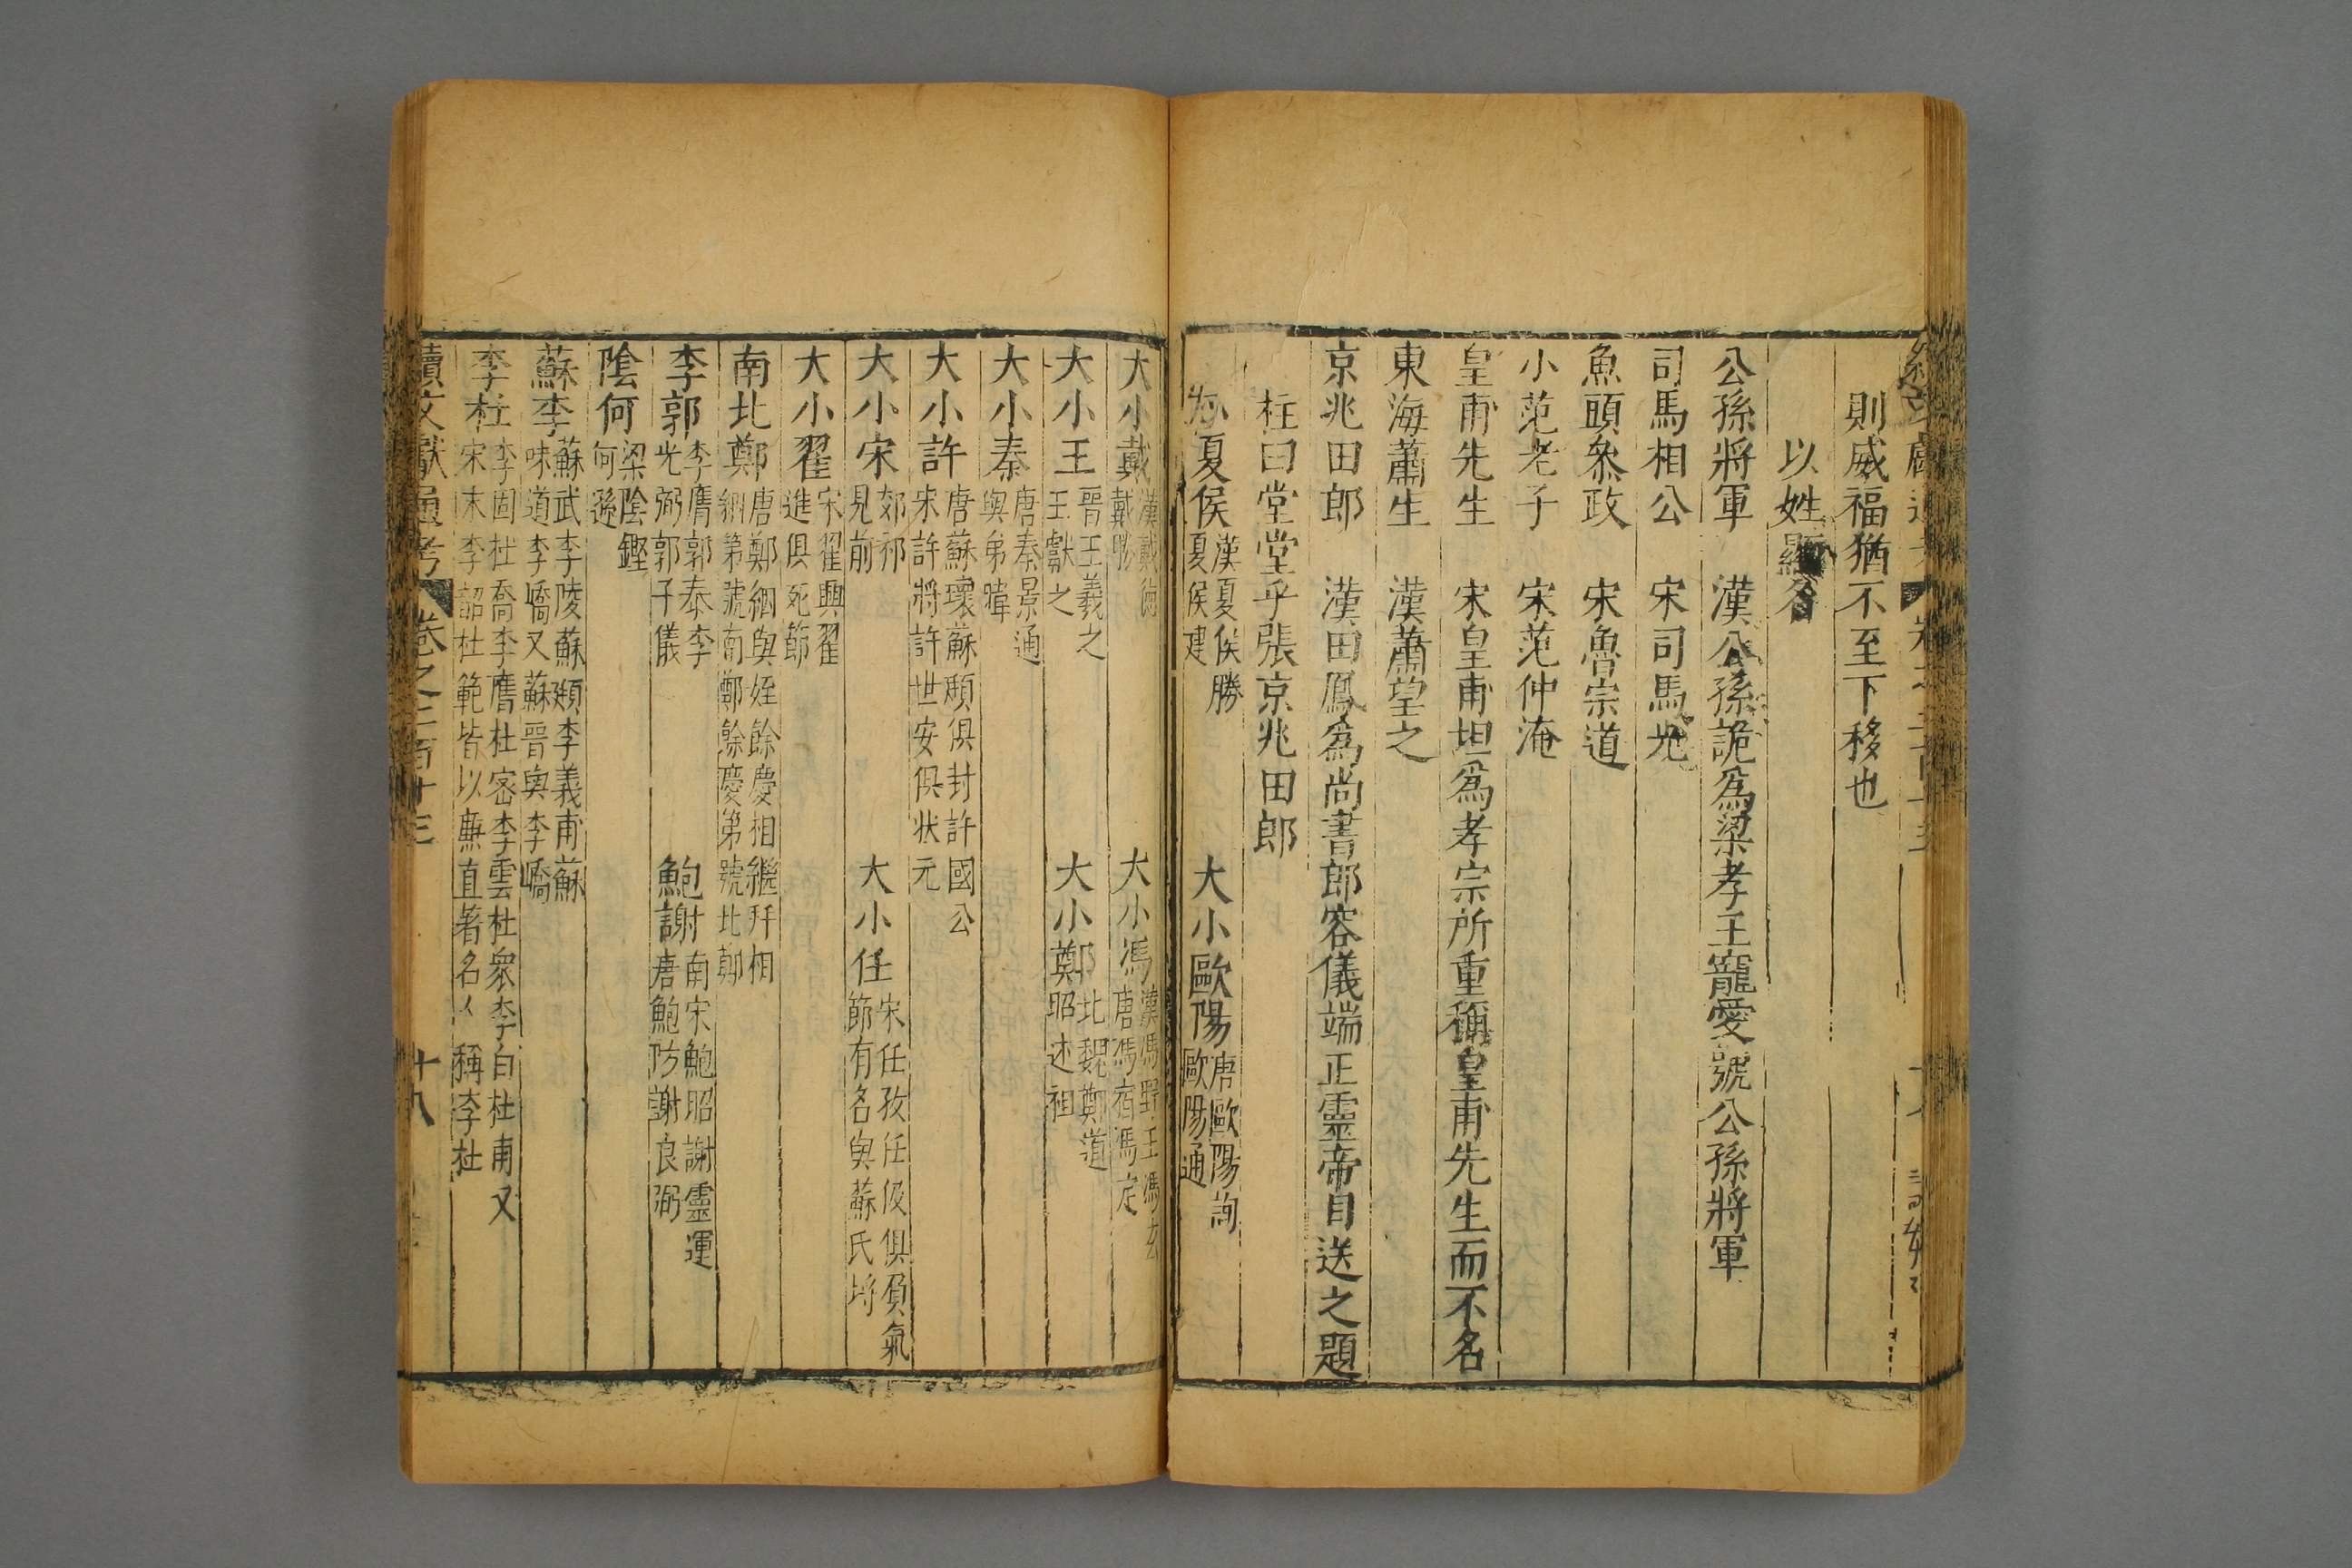 則威福猶不至下移也
以姓顯名
公孫將軍　漢公孫詭爲梁孝王寵愛號公孫將軍
司馬相公　宋司馬光
魚頭叅政　宋魯宗道
小范老子　宋范仲淹
皇甫先生　宋皇甫坦爲孝宗所重稱皇甫先生而不名
東海蕭生　漢蕭望之
京兆田郎　漢田鳳爲尚書郎容儀端正靈帝目送之題
柱曰堂堂乎張京兆田郎
夏侯
漢夏侯勝
夏侯建
大小歐陽
唐歐陽詢
歐陽通
大小戴
漢戴德
戴勝
大小馮
漢馮野王馮
唐馮宿馮定
大小王
晉王羲之
王獻之
大小鄭
北魏鄭道
昭述祖
大小秦
唐秦景通
與弟暐
大小許
唐蘇瓌蘇頲俱封許國公
宋許將許世安俱状元
大小宋
郊祁
見前
大小任
宋任孜任伋俱負氣
節有名與蘇氏埒
大小翟
宋翟興翟
進俱死節
南北鄭
唐鄭絪與姪餘慶相繼拜相
絪第號南鄭餘慶第號北鄭
李郭
李膺郭泰李
光弼郭子儀
鮑謝
南宋鮑昭謝靈運
唐鮑防謝良弼
陰何
梁陰鏗
何遜
蘇李
蘇武李陵蘇頲李義甫蘇
味道李嶠又蘇晉與李嶠
李杜
李固杜喬李膺杜密李雲杜衆李白杜甫又
宋末李韶杜範皆以廉直著名人稱李杜
續文獻通考　卷之二百十三　十八